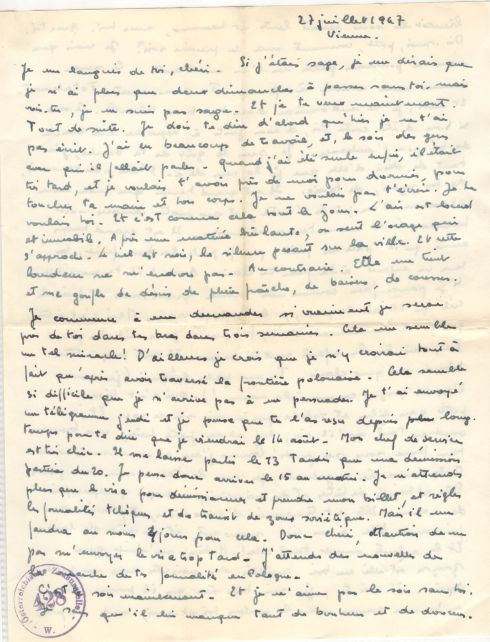 27 juillet 1947
Vienne.
Je me languis de toi, chéri. Si j'étais sage, je me dirais que
je n'ai plus que deux dimanches à passer sans toi. mais
vois-tu, je ne suis pas sage. Et je te veux maintenant.
Tout de suite. Je dois te dire d'abord qu'hier je ne t'ai
pas écrit. J'ai eu beaucoup de travail, et, le soir des gens
avec qui il fallait parler. Quand j'ai été seule enfin, il était
très tard, et je voulais t'avoir près de moi pour dormir, pour
toucher ta main et ton corps. Je ne voulais pas t'écrire. Je te
voulais toi. Et c'est comme cela tout le jour. L'air est lourd
et immobile. Après une matinée brûlante, on sent l'orage qui
s'approche. Le ciel est noir, le silence pesant sur la ville. Et cette
lourdeur ne m'endort pas. Au contraire. Elle me tend
et me gonfle de désirs de pluie fraîche, de baisers, de courses.
Je commence à me demander si vraiment je serai
près de toi dans tes bras dans trois semaines. Cela me semble
un tel miracle! D'ailleurs je crois que je n'y croirai tout à
fait qu'après avoir traversé la frontière polonaise. Cela semble
si difficile que je n'arrive pas à me persuader. Je t'ai envoyé
un télégramme jeudi et je pense que tu l'as reçu depuis plus long-
temps pour te dire que je viendrai le 14 août. Mon chef de service
est très chic. Il me laisse partir le 13 tandis que ma démission
partira du 20. Je pense donc arriver le 15 au matin. Je n'attends
plus que le visa pour démissionner et prendre mon billet, et régler
les formalités tchèques et de transit de zone soviétique. Mais il me
faudra au moins 4 jours pour cela. Donc chéri, attention de ne
pas m'envoyer le visa trop tard. J'attends des nouvelles de
la longueur de tes formalités en Pologne.
soir maintenant. Et je n'aime pas le soir sans toi.
que il lui manque tant de bonheur et de douceur.
Österreichische Zensurstelle
428
W.